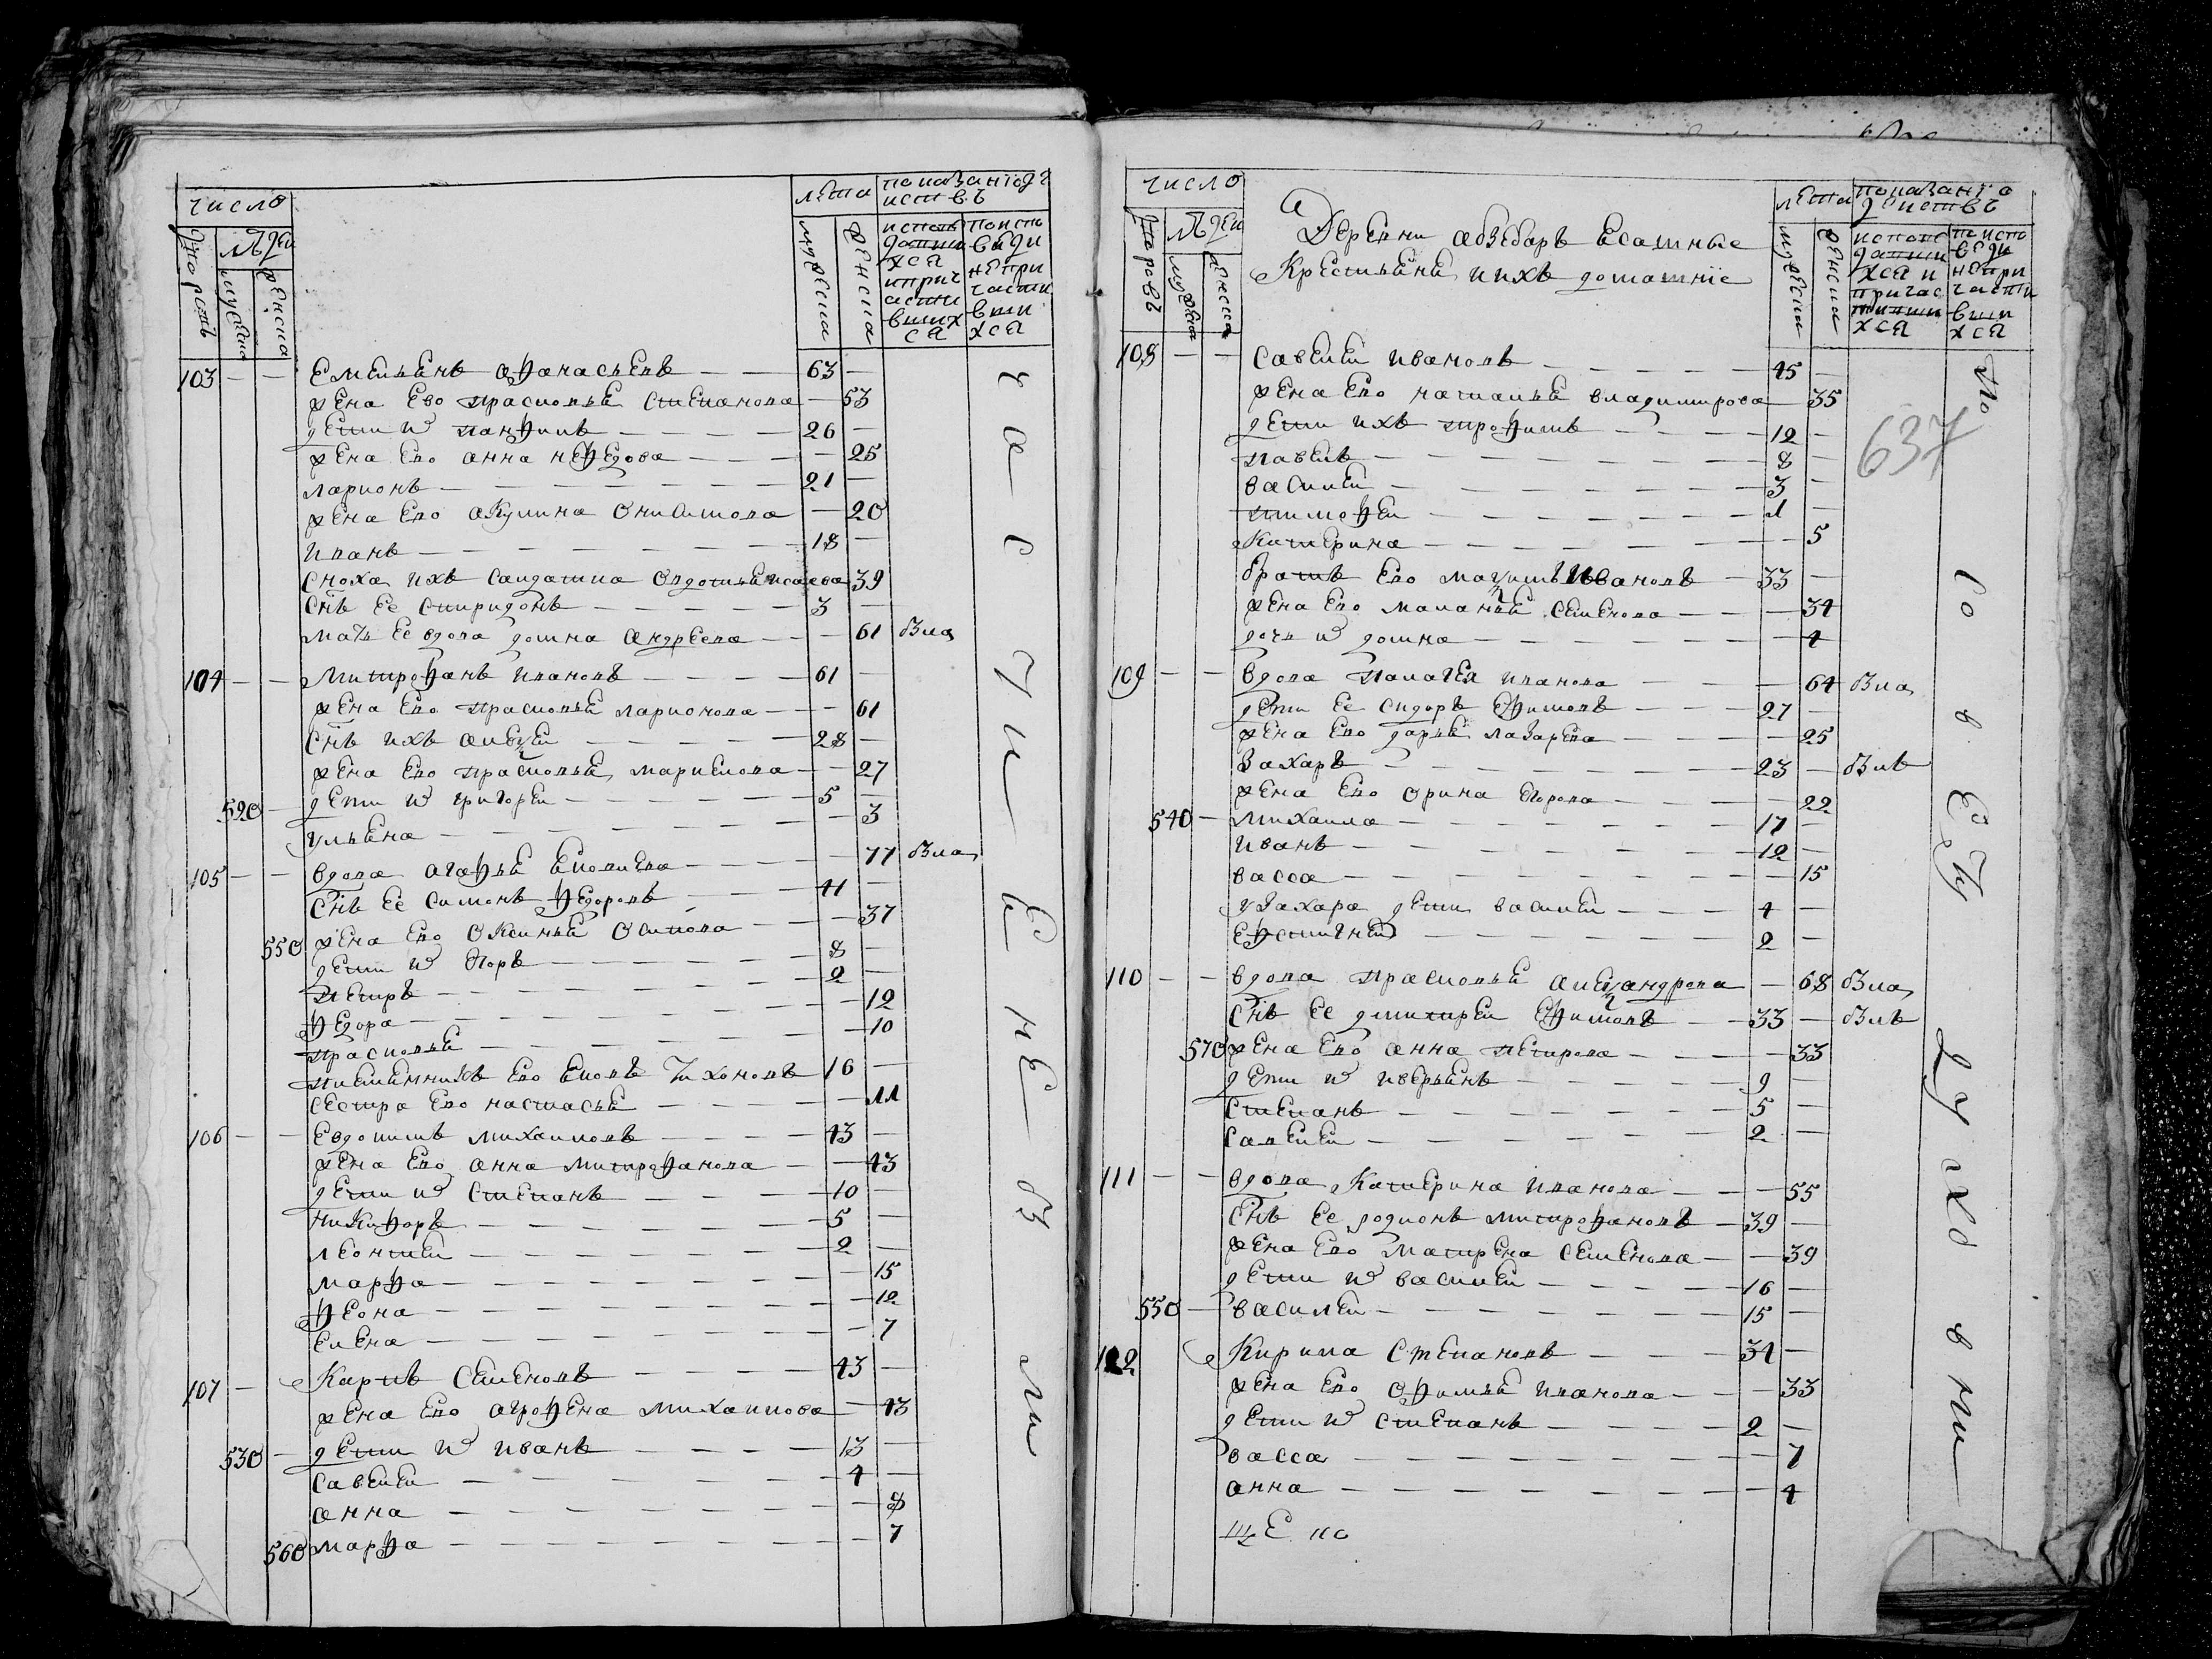 число
людей
дворовъ
мужска
женска
лѣта
мужеска
женска
показанiо дѣ
иствъ
исповѣ
давши
хся
и прич
асти
вших
ся
по испо
вѣди
не при
части
вши
хся
103 — — Емельянъ афанасьевъ — — 63 —
жена ево прасковья степанова — 53
дети их панфилъ — — — — 26 —
жена ево анна нефедова — — — 25
ларионъ — — — — — — — 21 —
жена ево акулина онисимова — 20
иванъ — — — — — — — 18 —
сноха ихъ салдатка овдотья исаева 39
снъ ее спиридонъ — — — — — 3 —
мать ее вдова домна андреева — — 61
104 — — митрофанъ ивановъ — — — — 61 —
жена ево прасковья ларионова — — 61
снъ ихъ алексей — — — — — 28 —
жена ево прасковья маркелова — — 27
520 — дети их григорей — — — — — 5 —
ульяна — — — — — — — 3
105 — — вдова агафья — — — — 77
снъ ее симонъ федоровъ — — — 41 —
550 жена ево оксинья осипова — — 37
дети их егоръ — — — — — 8 —
петръ — — — — — — — 2 —
федора — — — — — — — 12
прасковья — — — — — — 10
племянникъ ево тихоновъ 16 —
сестра ево настасья — — — — 11
106 — — Евдокимъ михаиловъ — — — — 43 —
жена ево анна митрофанова — — 43
дети их степанъ — — — — 10 —
никифоръ — — — — — — 5 —
леонтей — — — — — — 2 —
марфа — — — — — — — 15
феона — — — — — — — 12
елена — — — — — — — 7
107 — Карпъ семеновъ — — — — 43 —
жена ево агрофена михаилова — 43
530 — дети их иванъ — — — — 13 —
савелей — — — — — — — 4 —
анна — — — — — — — 8
560 марфа — — — — — — — 7
число
людей
дворовъ
мужска
женска
Деревни
крестьяне и ихъ домашнiе
лѣта
мужеска
женска
показанiо
действъ
исповѣ
давши
хся и
причас
тивши
хся
по испо
вѣди
не при
части
вши
хся
637
108 — — савелей ивановъ — — — — 45 —
жена ево наталья владимирова — 35
дети ихъ трофимъ — — — — 12 —
павелъ — — — — — — — 8 —
василей — — — — — — 3 —
тимофей — — — — — — 1 —
катерина — — — — — — — 5
братъ ево ивановъ — 33 —
жена ево маланья семенова — — — 34
дочь их домна — — — — — — 4
109 — — вдова палагея иванова — — — 64
дети ее сидоръ ефимовъ — — — 27 —
жена ево дарья лазарева — — — — 25
захаръ — — — — — — — 23 —
жена ево орина егорова — — — — 22
540 — михаила — — — — — — — 17 —
иванъ — — — — — — — 12 —
васса — — — — — — — — 15
у захара дети василей — — — 4 —
— — — — — — 2 —
110 — — вдова прасковья александрова — 68
снъ ее дмитрей ефимовъ — — 33 —
570 жена ево анна петрова — — — — 33
дети их — — — — — 9 —
степанъ — — — — — — — 5 —
савелей — — — — — — 2 —
111 — — вдова катерина иванова — — — 55
снъ ее родионъ митрофановъ — 39 —
жена ево матрена семенова — — 39
дети их василей — — — — — 16 —
550 — василей — — — — — — 15 —
112 Кирила степановъ — — — 34 —
жена ево офимья иванова — — — 33
дети их степанъ — — — — 2 —
васса — — — — — — — — 7
анна — — — — — — — — 4